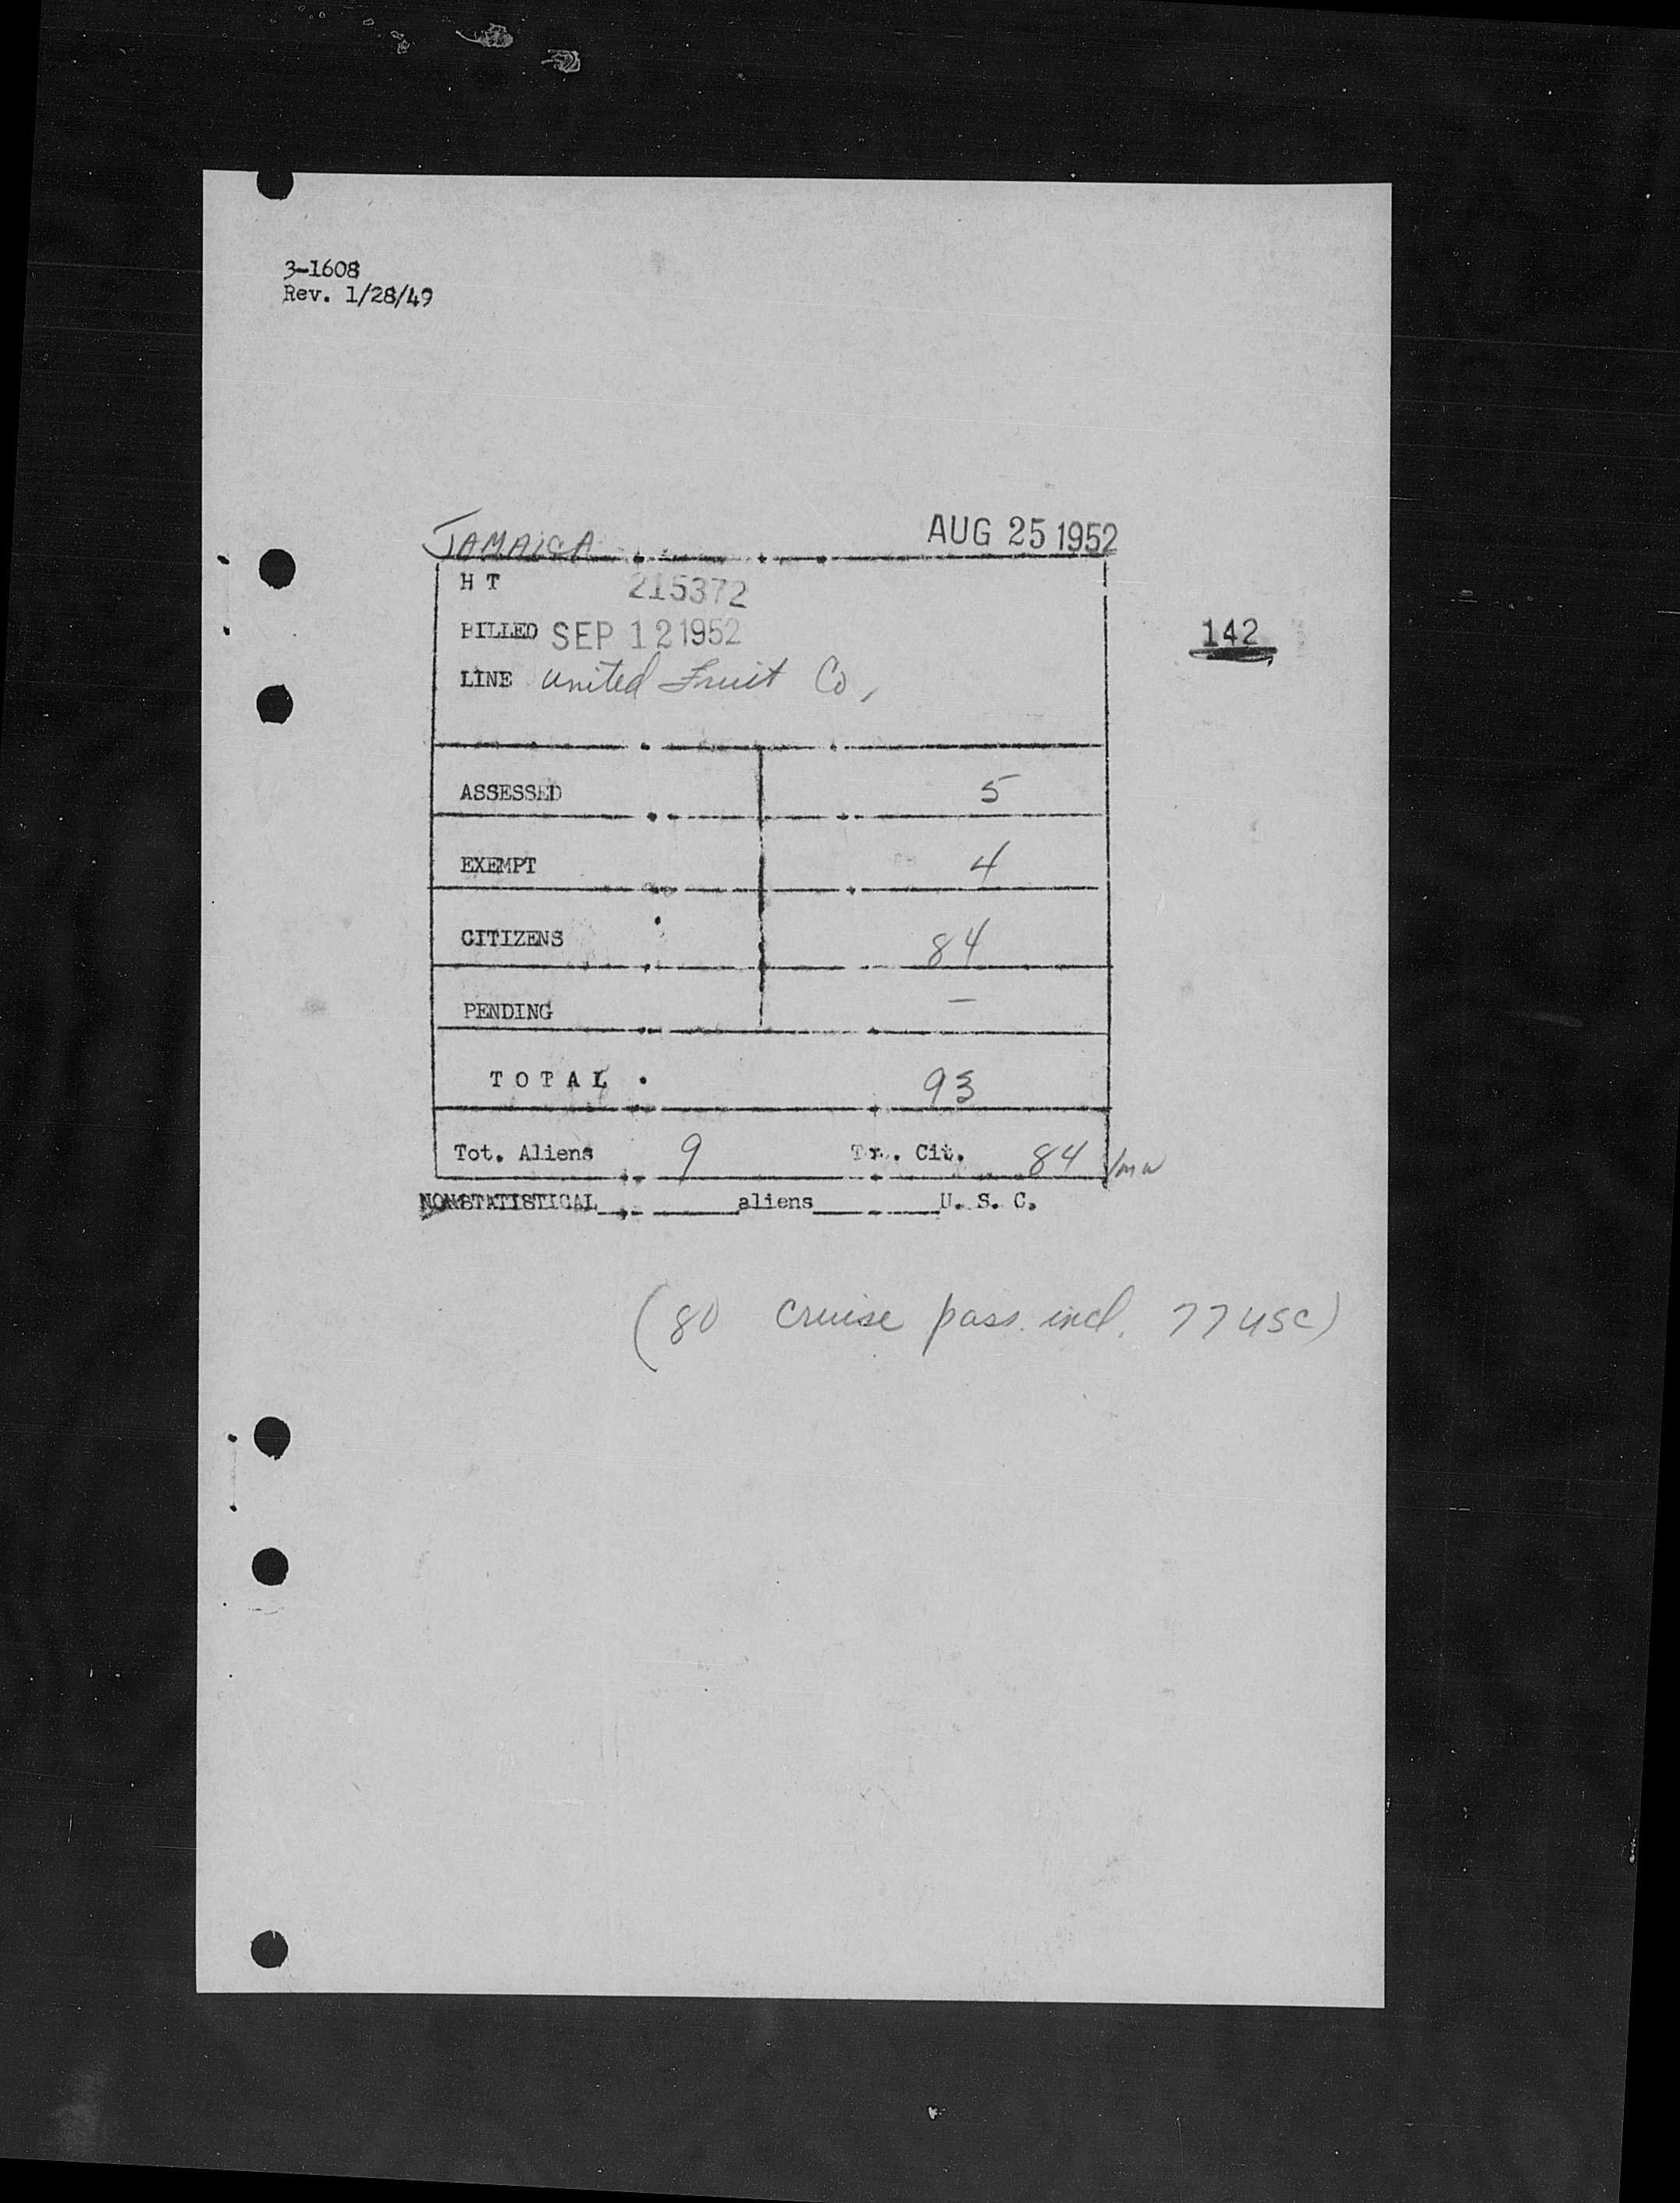 3-1608
Rev. 1/28/49
JAMAICA AUG 25 1952
H T 215372
BILLED SEP 12 1952
142
LINE United Fruit Co,
ASSESSED 5
EXEMPT 4
CITIZENS 84
PENDING –
TOTAL 93
Tot. Aliens 9 Tr. Cit. 84 /mw
NONSTATISTICAL aliens U. S. C.
(80 cruise pass. incl. 77 USC)